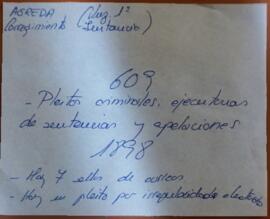 AGREDA (Juz. 1ª
Corregimiento Instancia)
609
- Pleitos criminales, ejecutorias
de sentencias y apelaciones
1898
- Hay 7 ellos de
- Hay un pleito por irregularidades electorales